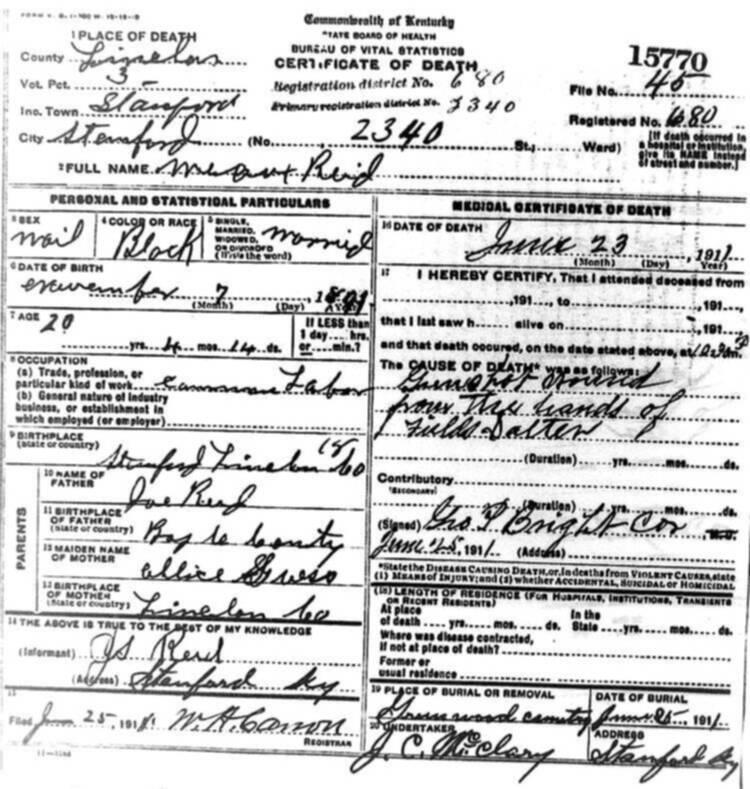 Commonwealth of Kentucky
STATE BOARD OF HEALTH
BUREAU OF VITAL STATISTICS
CERTIFICATE OF DEATH
15770
1 PLACE OF DEATH
County Lincoln
Vot. Pct. 3
Inc. Town Stanford
City Stanford (No. 2340 St., Ward)
Registration district No. 680
Primary registration district No. 2340
File No. 45
Registered No. 680
[If death occurred in a hospital or institution, give its NAME instead of street and number.]
2 FULL NAME Reid
PERSONAL AND STATISTICAL PARTICULARS
3 SEX
Mail
4 COLOR OR RACE
Black
5 SINGLE, MARRIED, WIDOWED, OR DIVORCED (Write the word)
Married
6 DATE OF BIRTH
7
(Month) (Day) (Year)
7 AGE
20 yrs. 4 mos. 14 ds.
If LESS than 1 day ... hrs. or ... min.?
8 OCCUPATION
(a) Trade, profession, or particular kind of work Common Labor
(b) General nature of industry business, or establishment in which employed (or employer)
9 BIRTHPLACE
(State or country) Stanford Lincoln Co
PARENTS
10 NAME OF FATHER
Joe Reid
11 BIRTHPLACE OF FATHER
(State or country) County
12 MAIDEN NAME OF MOTHER
13 BIRTHPLACE OF MOTHER
(State or country) Lincoln Co
14 THE ABOVE IS TRUE TO THE BEST OF MY KNOWLEDGE
(Informant) Reid
(Address) Stanford Ky
15
Filed June 25, 1911 W.H. Carson
REGISTRAR
MEDICAL CERTIFICATE OF DEATH
16 DATE OF DEATH
June 23, 1911
(Month) (Day) (Year)
17 I HEREBY CERTIFY, That I attended deceased from
, 191 , to , 191 ,
that I last saw h alive on , 191 ,
and that death occurred, on the date stated above, at 10:30 m.
The CAUSE OF DEATH* was as follows:
Gunshot wound
from the hands of
(Duration) yrs. mos. ds.
Contributory
(SECONDARY)
(Duration) yrs. mos. ds.
(Signed) Geo. P. Bright Cor M.D.
June 25, 1911 (Address)
*State the DISEASE CAUSING DEATH, or, in deaths from VIOLENT CAUSES, state (1) MEANS OF INJURY; and (2) whether ACCIDENTAL, SUICIDAL or HOMICIDAL
(18) LENGTH OF RESIDENCE (FOR HOSPITALS, INSTITUTIONS, TRANSIENTS OR RECENT RESIDENTS)
At place of death yrs. mos. ds. In the State yrs. mos. ds.
Where was disease contracted, if not at place of death?
Former or usual residence
19 PLACE OF BURIAL OR REMOVAL
cemetery
DATE OF BURIAL
June 25, 1911
20 UNDERTAKER
J. C. McClary
ADDRESS
Stanford Ky